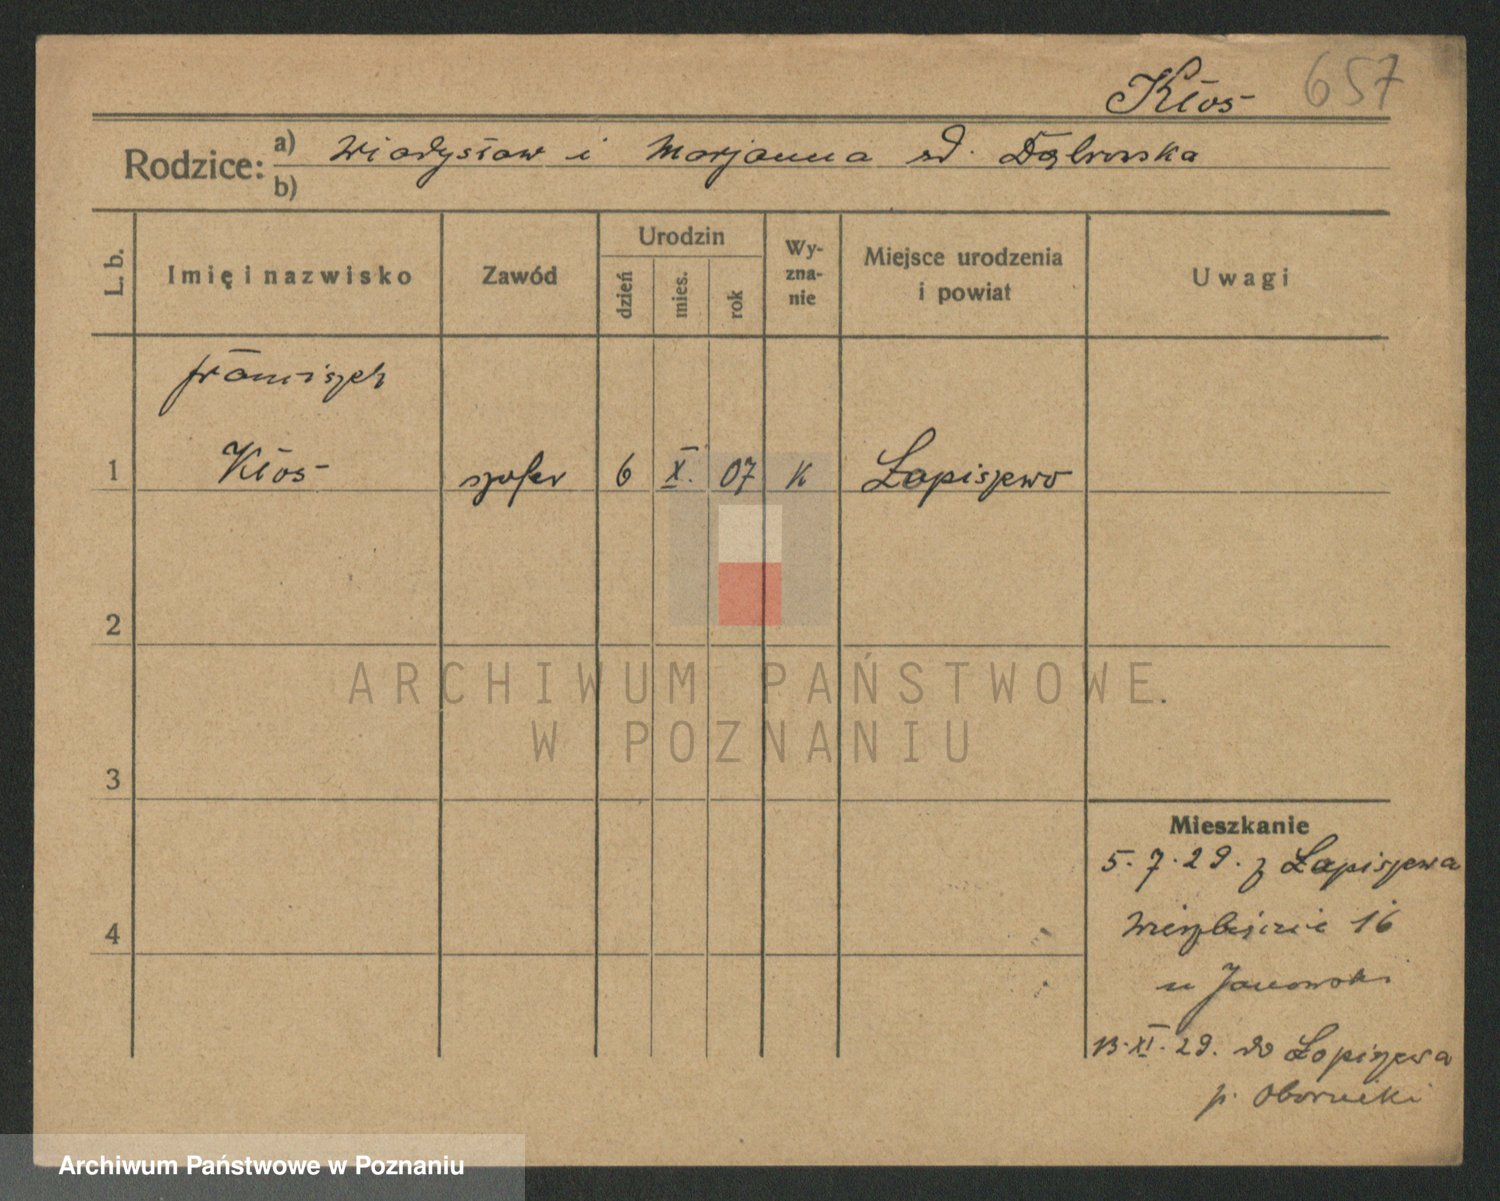 Kłos 657
Rodzice: a) Władysław i Marjanna zd. Dąbrowska
b)
L. b. Imię i nazwisko Zawód Urodzin dzień mies. rok Wy-zna-nie Miejsce urodzenia i powiat Uwagi
Franciszek
1 Kłos szofer 6 X. 07 K Łopiszewo
2
3
4
Mieszkanie
5.7.29. z Łopiszewa
Wierzbięcice 16
u Janowski
13.XI.29. do Łopiszewa
p. Obornicki
ARCHIWUM PAŃSTWOWE
W POZNANIU
Archiwum Państwowe w Poznaniu